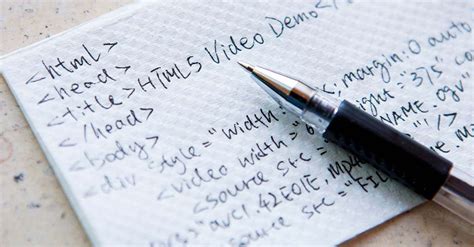 <html>
<head>
<title>HTML5 Video Demo</
</head>
<body>
<div style="width: margin:0 auto
<video width="6 height="375 con
<source src= NAME.ogv" />
"avc1.42E01E, mp4
source src = "FIL